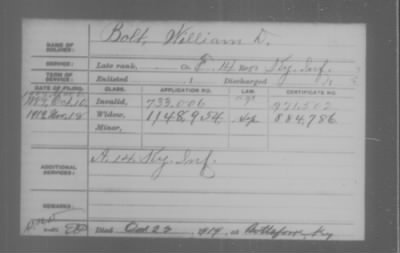 NAME OF SOLDIER: Bolt, William D.
SERVICE: Late rank, Co. E, 14 Reg't Ky. Inf.
TERM OF SERVICE: Enlisted 1 Discharged 1
DATE OF FILING. CLASS. APPLICATION NO. LAW. CERTIFICATE NO.
1889 Oct. 10 Invalid, 733,006
1914 Nov. 18 Widow, 1148,954 884,786
Minor,
ADDITIONAL SERVICES: A. 14 Ky. Inf.
REMARKS:
Died Oct 22 1914 at Boltsfork, Ky